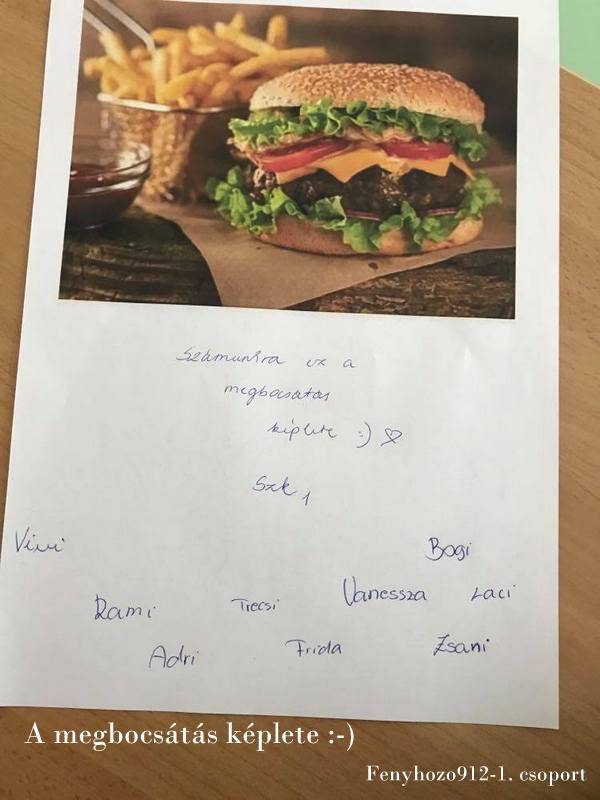 Számunkra ez a
megbocsátás
képlete :) ♡
Szk 1
Vivi
Bogi
Rami Trecsi Vanessza Laci
Adri Frida Zsani
A megbocsátás képlete :-)
Fenyhozo912-1. csoport